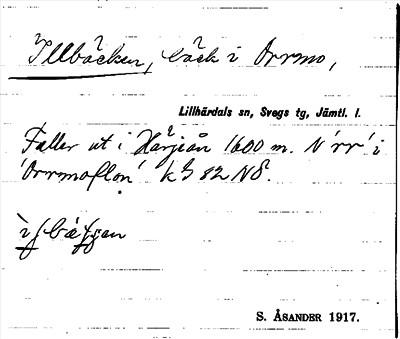 Illbäcken, bäck i Orrmo,
Lillhärdals sn, Svegs tg, Jämtl. l.
Faller ut i Härjeån 1600 m. N 'rr' i
'Orrmoflon' k 82 NÖ.
S. ÅSANDER 1917.